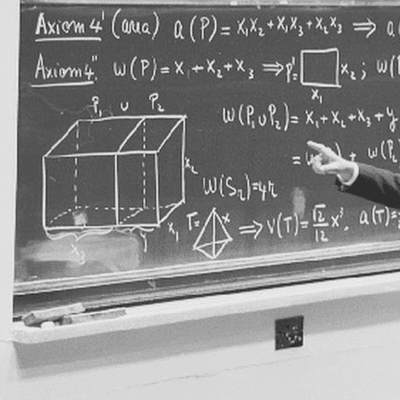 Axiom 4' (area) a(P) = x₁x₂ + x₁x₃ + x₂x₃ ⇒ a
Axiom 4'' w(P) = x₁ + x₂ + x₃ ⇒ P' = x₂ ; w(P
x₁
P₁ ∪ P₂
w(P₁∪P₂) = x₁ + x₂ + x₃ + y
= w( ) + w(P₂
x₂
w(S₂) = 4r
x₁
T = x ⇒ V(T) = √2/12 x³. a(T) =
x₃ y